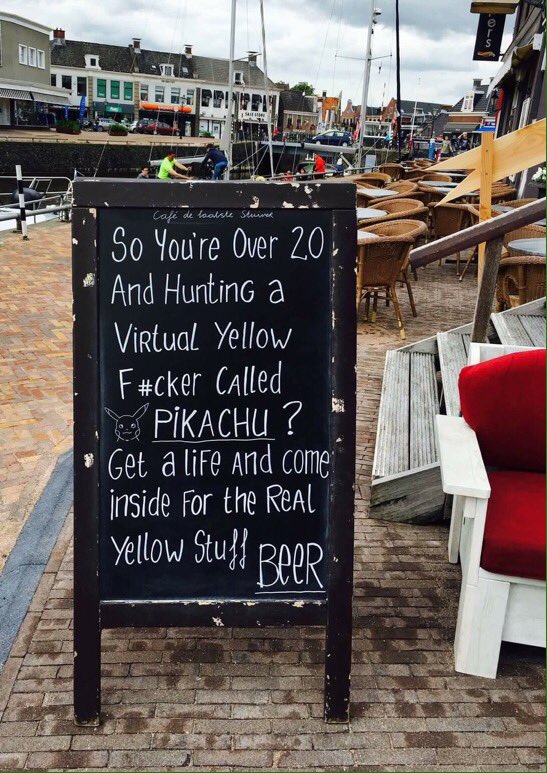 ers
Café de laatste Stuiver
So You're Over 20
And Hunting a
Virtual Yellow
F#cker Called
PiKACHU?
Get a life and come
inside For the Real
Yellow Stuff
BEER